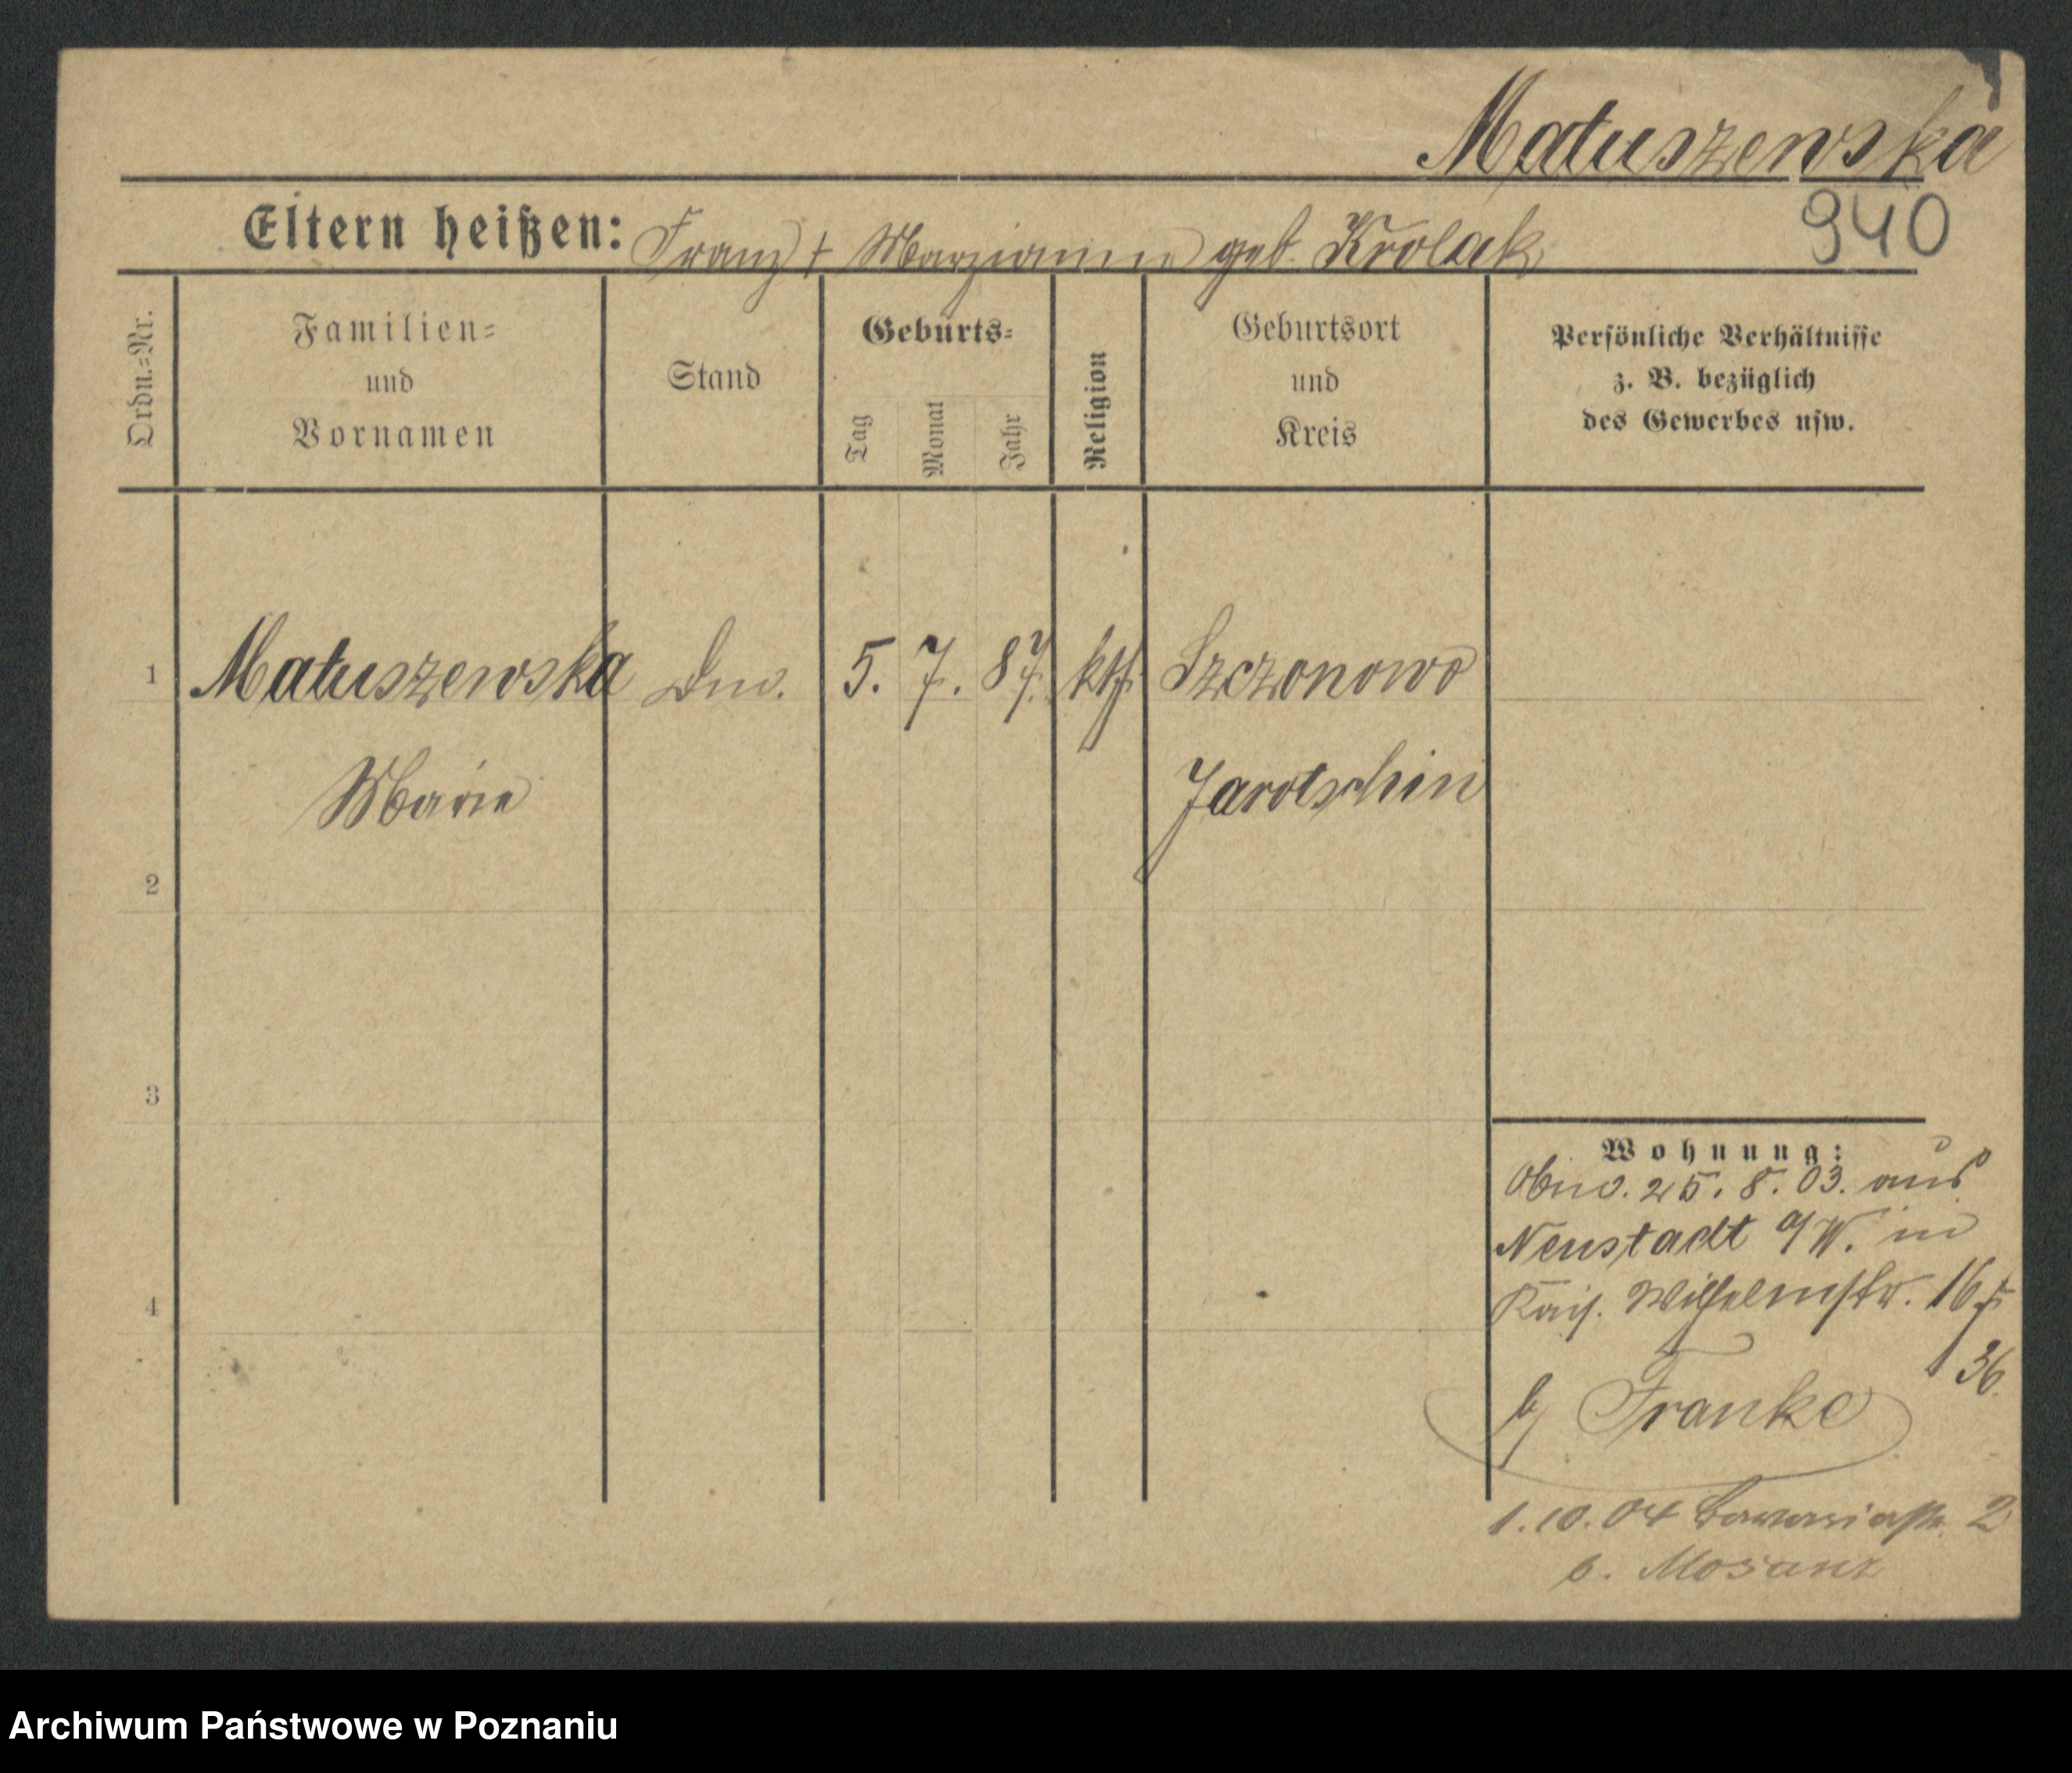 Matuszewska
940
Eltern heißen: Franz † Marzianna geb. Krolak
Ordn.=Nr.
Familien=
und
Vornamen
Stand
Geburts=
Tag
Monat
Jahr
Religion
Geburtsort
und
Kreis
Persönliche Verhältnisse
z. B. bezüglich
des Gewerbes usw.
1 Matuszewska 5. 7. 87. kth. Szczonowo
Marie Jarotschin
2
3
4
Wohnung:
25. 8. 03. aus
Neustadt a/W. in
Kais. Wilhelmstr. 16
36.
b/ Franke
1.10.04 2
b.
Archiwum Państwowe w Poznaniu